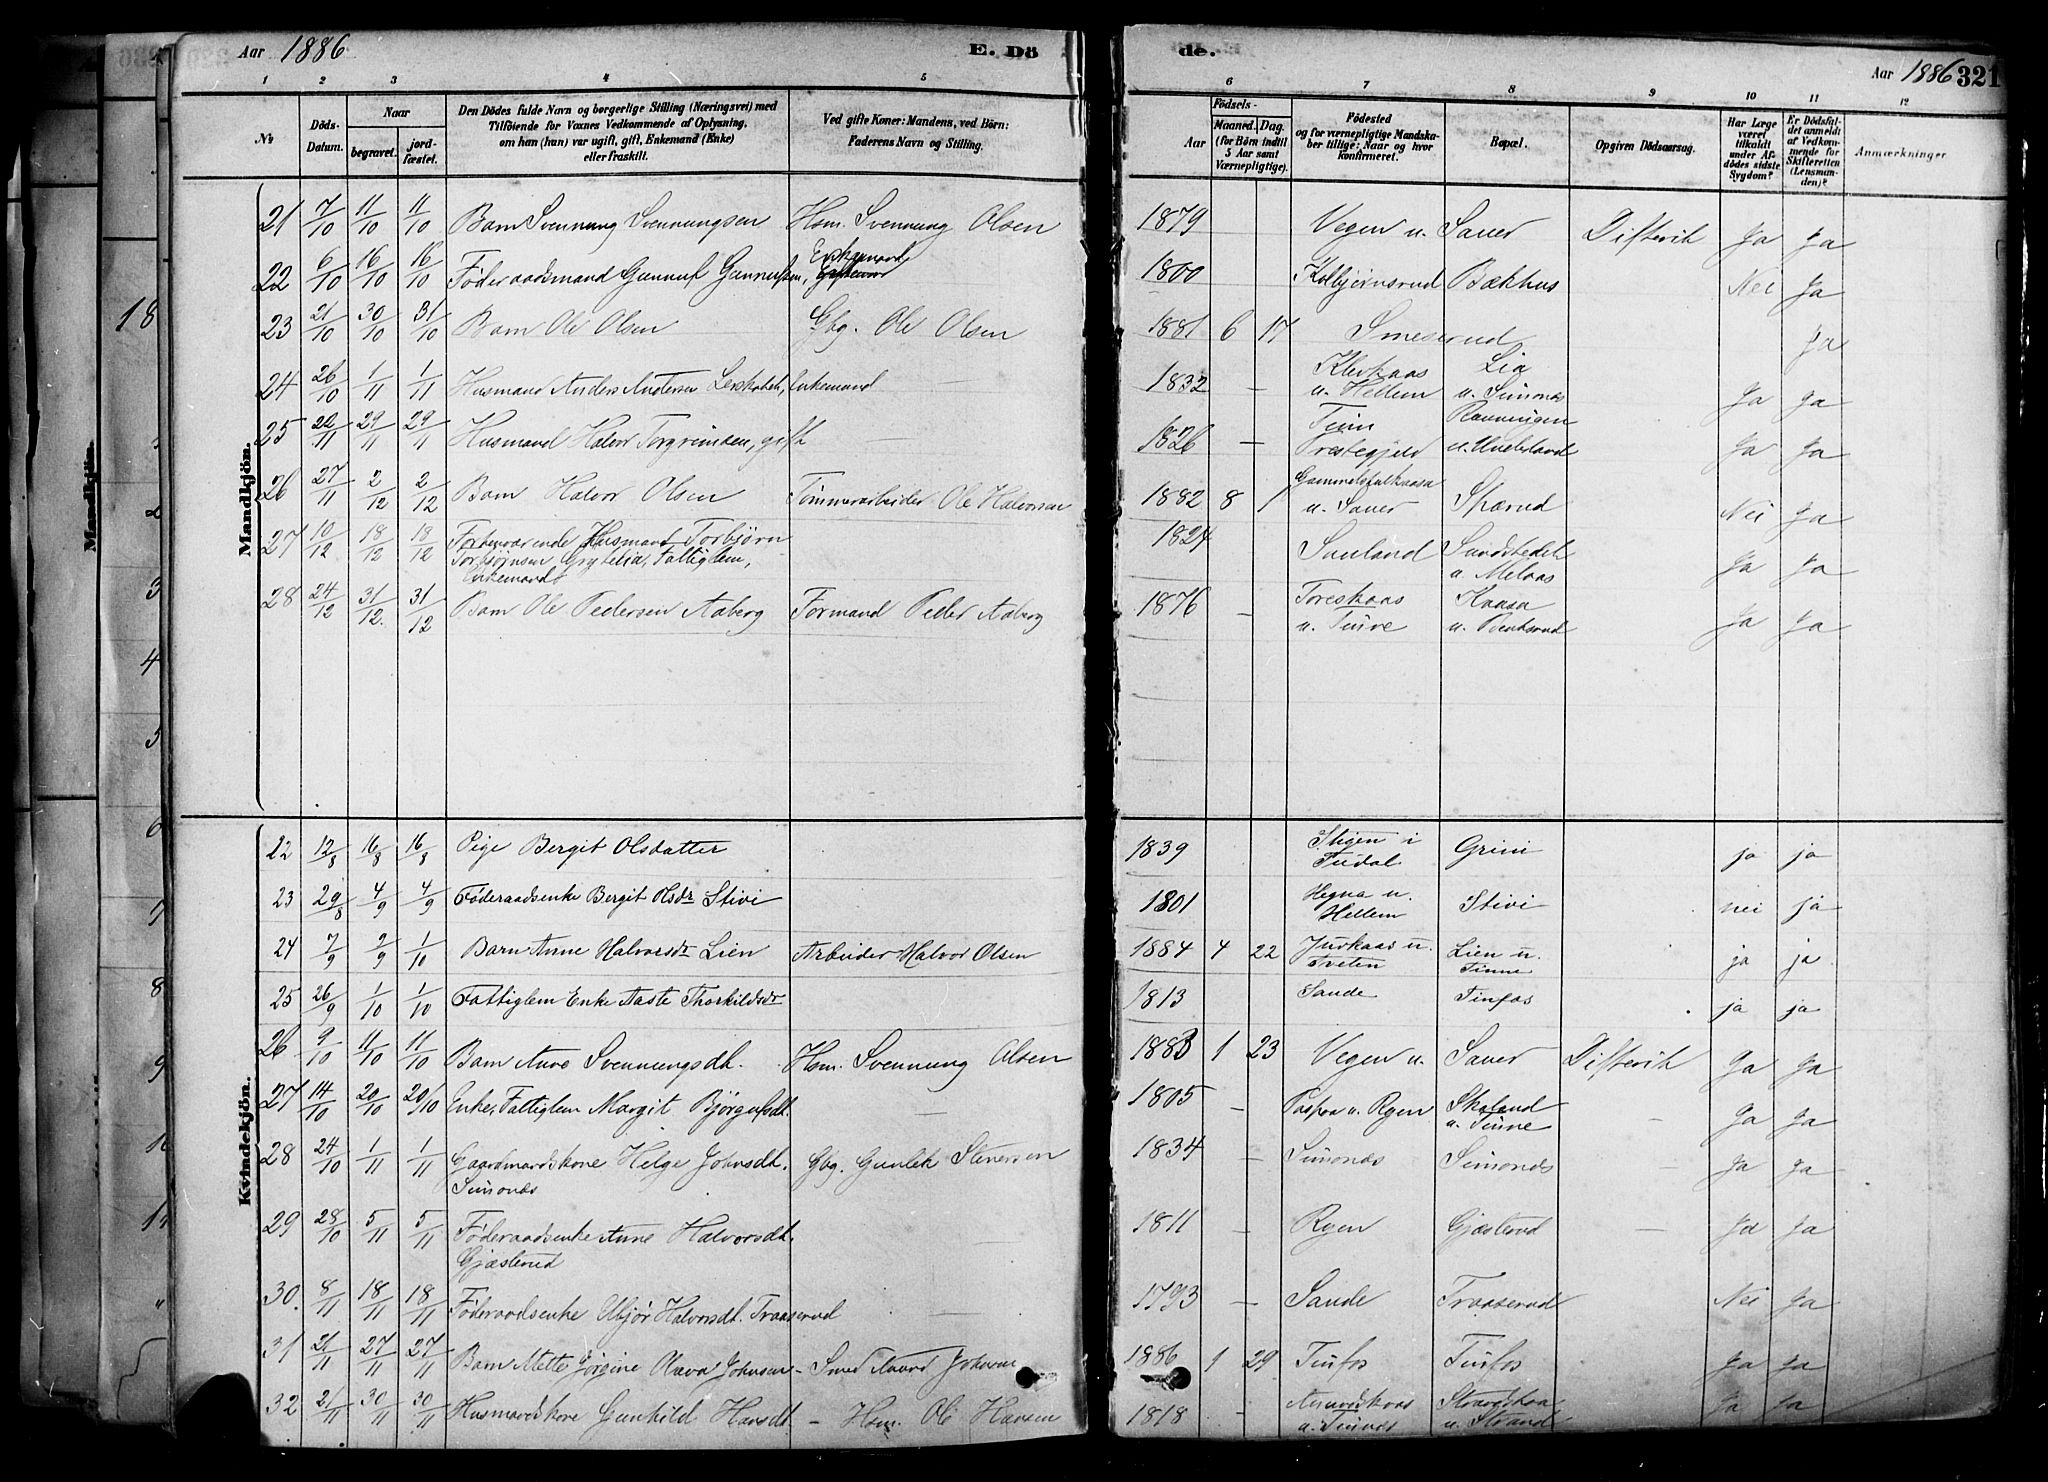 Aar 1886 E. Dö
de. Aar 1886 321
1 2 3 4 5 6 7 8 9 10 11 12
№ Döds-Datum. Naar begravet. jord-fæstet. Den Dödes fulde Navn og borgerlige Stilling (Næringsvei) med Tilföiende for Voxnes Vedkommende af Oplysning, om han (hun) var ugift, gift, Enkemand (Enke) eller fraskilt. Ved gifte Koner: Mandens, ved Börn: Faderens Navn og Stilling. Födsels- Aar Maaned. Dag. (for Börn indtil 5 Aar samt Værnepligtige). Födested og for værnepligtige Mandskaber tillige: Naar og hvor konfirmeret. Bopæl. Opgiven Dödsaarsag. Har Læge været tilkaldt under Afdödes sidste Sygdom? Er Dödsfaldet anmeldt af Vedkommende for Skifteretten (Lensmanden)? Anmærkninger
Mandkjön.
21 7/10 11/10 11/10 Barn Svennung Svennungsen Hsm. Svennung Olsen 1879 Vegen u. Sauer Difterit Ja Ja
22 6/10 16/10 16/10 Föderaadsmand Gunnuf Gunnufsen, Enkemand 1800 Kolbjørnsrud Bækhus Nei Ja
23 21/10 30/10 31/10 Barn Ole Olsen Gbg. Ole Olsen 1881 6 17 Smeserud Ja
24 26/10 1/11 1/11 Husmand Anders Andersen Leirkodet, Enkemand — 1832 — Klevkaas u. Hellem Lia u. Simonæs Ja Ja
25 22/11 29/11 29/11 Husmand Halvor Torgrimsen, gift — 1826 — Tinn Prestegjeld Ja Ja
26 27/11 2/12 2/12 Barn Halvor Olsen Tömmerarbeider Ole Halvorsen 1882 8 1 u. Sauer Skærud Nei Ja
27 10/12 18/12 18/12 Forhenværende Husmand Torbjørn Torbjørnsen Grytelia, Fattiglem, Enkemand 1824 Sauland Sundstedet u. Melaas Ja Ja
28 24/12 31/12 31/12 Barn Ole Pedersen Aaberg Formand Peder Aaberg 1876 — Toreskaas u. Tinne Kaasa u. Ja Ja
Kvindekjön.
22 12/8 16/8 16/8 Pige Bergit Olsdatter 1839 Stigen i Tudal Grini ja ja
23 29/8 4/9 4/9 Föderaadsenke Bergit Olsdr Stivi 1801 Hegna u. Hellem Stivi nei ja
24 7/9 9/9 1/10 Barn Anne Halvorsdr Lien Arbeider Halvor Olsen 1884 4 22 Juvkaas u. Tveten Lien u. Tinne ja ja
25 26/9 1/10 1/10 Fattiglem Enke Aaste Thorkildsdr 1813 Sande Tinfos ja ja
26 9/10 11/10 11/10 Barn Anne Svennungsdt. Hsm. Svennung Olsen 1883 1 23 Vegen u. Sauer Difterit Ja Ja
27 14/10 20/10 20/10 Enke, Fattiglem Margit Björgufsdt. — 1805 — u. Ryen Skoland u. Tinne — Ja Ja
28 24/10 1/11 1/11 Gaardmandskone Helge Johnsdt. Simonæs Gbg. Gunlek Stenersen 1834 — Simonæs Simonæs — Ja Ja
29 28/10 5/11 5/11 Föderaadsenke Anne Halvorsdt. Gjæsterud — 1811 — Ryen Gjæsterud — Ja Ja
30. 8/11 18/11 18/11 Föderaadsenke Albjör Halvorsdt. Traaserud — 1793 — Sande Traaserud Nei Ja
31 21/11 27/11 27/11 Barn Mette Jörgine Olava Johnsen – Smed Aanund Johnsen 1886 1 29 Tinfos Tinfos Ja Ja
32 21/11 30/11 30/11 Husmandskone Gunhild Hansdt. – Hsm. Ole Hansen 1818 — u. Tinnes u. Strand Ja Ja
Mandkjön.
18
1
2
3
4
5
6
7
8
9
10
11